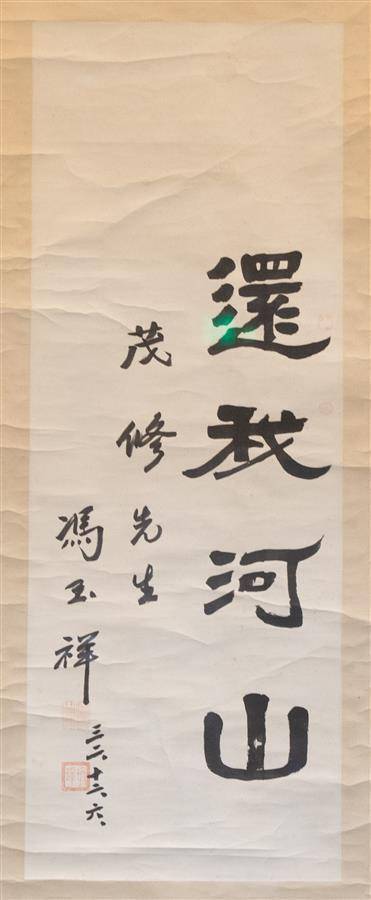 還我河山
茂修先生
馮玉祥
三六、十二、六、